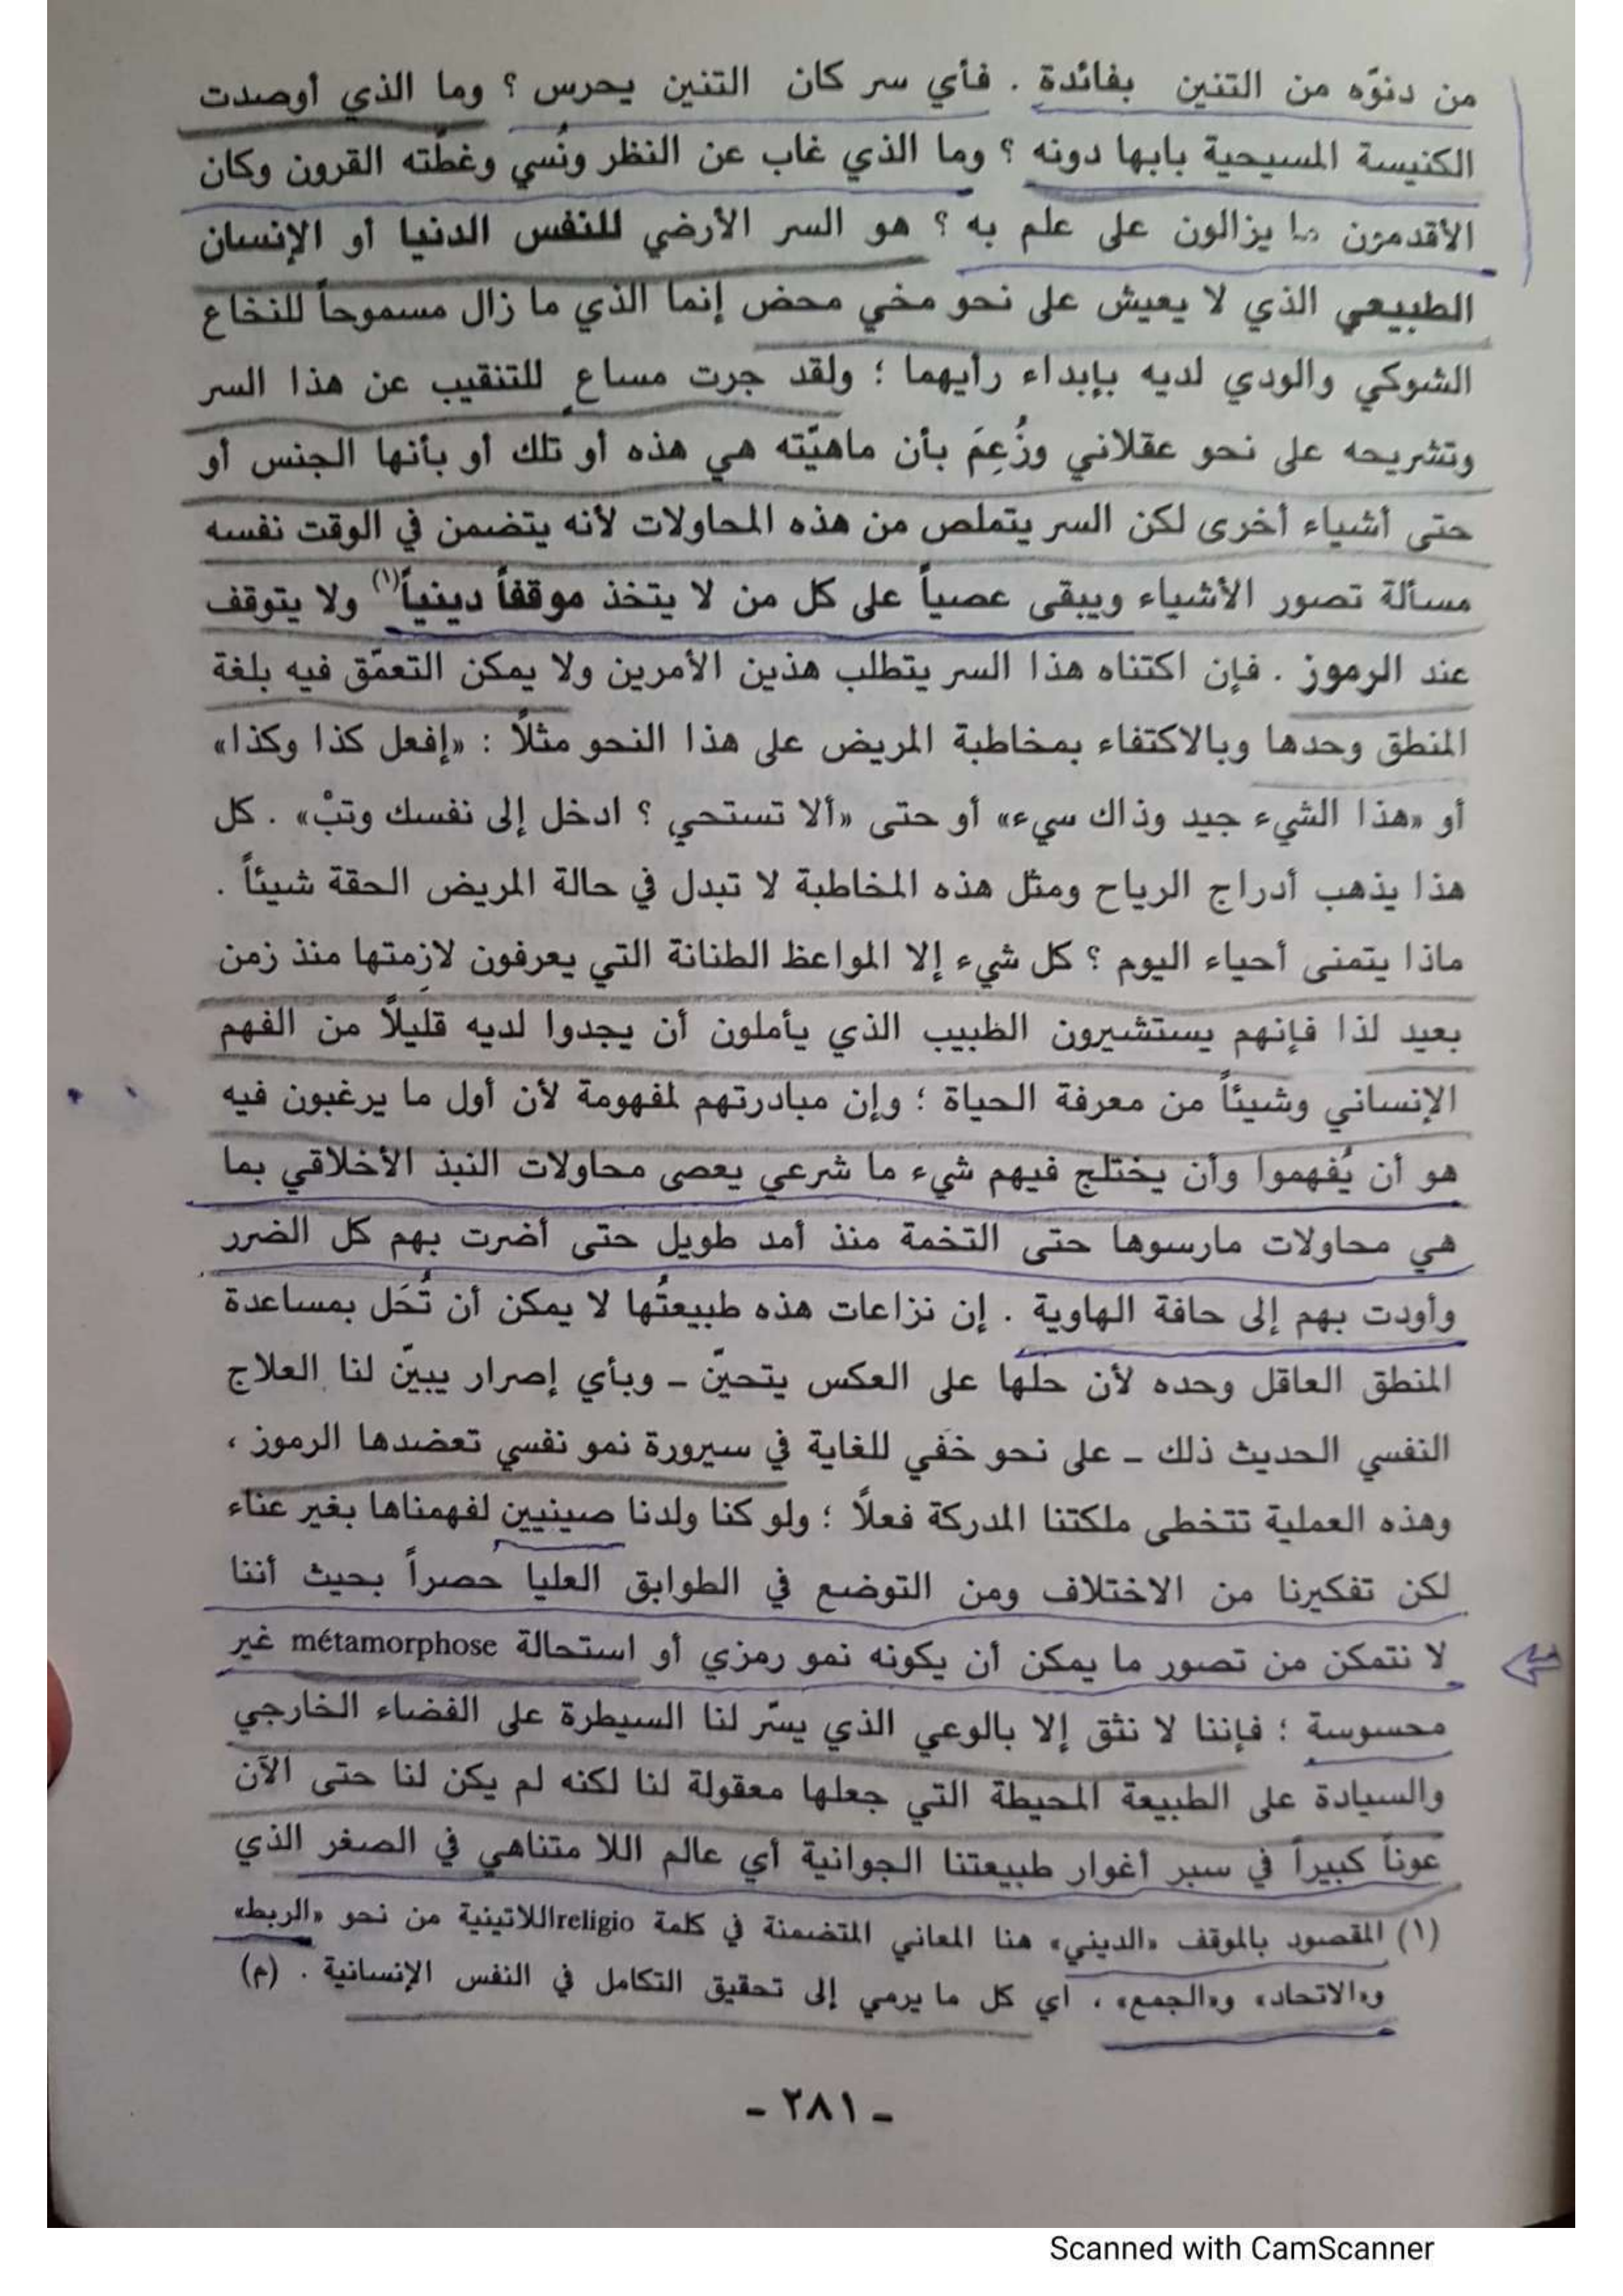 من دنوّه من التنين بفائدة . فأي سر كان التنين يحرس ؟ وما الذي أوصدت
الكنيسة المسيحية بابها دونه ؟ وما الذي غاب عن النظر ونُسي وغطّته القرون وكان
الأقدمون ما يزالون على علم به ؟ هو السر الأرضي للنفس الدنيا أو الإنسان
الطبيعي الذي لا يعيش على نحو مخي محض إنما الذي ما زال مسموحاً للنخاع
الشوكي والودي لديه بإبداء رأيهما ؛ ولقد جرت مساع للتنقيب عن هذا السر
وتشريحه على نحو عقلاني وزُعِمَ بأن ماهيّته هي هذه أو تلك أو بأنها الجنس أو
حتى أشياء أخرى لكن السر يتملص من هذه المحاولات لأنه يتضمن في الوقت نفسه
مسألة تصور الأشياء ويبقى عصياً على كل من لا يتخذ موقفاً دينياً(١) ولا يتوقف
عند الرموز . فإن اكتناه هذا السر يتطلب هذين الأمرين ولا يمكن التعمّق فيه بلغة
المنطق وحدها وبالاكتفاء بمخاطبة المريض على هذا النحو مثلاً : «إفعل كذا وكذا»
أو «هذا الشيء جيد وذاك سيء» أو حتى «ألا تستحي ؟ ادخل إلى نفسك وتبْ» . كل
هذا يذهب أدراج الرياح ومثل هذه المخاطبة لا تبدل في حالة المريض الحقة شيئاً .
ماذا يتمنى أحياء اليوم ؟ كل شيء إلا المواعظ الطنانة التي يعرفون لازِمتها منذ زمن
بعيد لذا فإنهم يستشيرون الظبيب الذي يأملون أن يجدوا لديه قليلاً من الفهم
الإنساني وشيئاً من معرفة الحياة ؛ وإن مبادرتهم لمفهومة لأن أول ما يرغبون فيه
هو أن يُفهموا وأن يختلج فيهم شيء ما شرعي يعصى محاولات النبذ الأخلاقي بما
هي محاولات مارسوها حتى التخمة منذ أمد طويل حتى أضرت بهم كل الضرر
وأودت بهم إلى حافة الهاوية . إن نزاعات هذه طبيعتُها لا يمكن أن تُحَل بمساعدة
المنطق العاقل وحده لأن حلها على العكس يتحينّ ـ وبأي إصرار يبينّ لنا العلاج
النفسي الحديث ذلك ـ على نحو خَفي للغاية في سيرورة نمو نفسي تعضدها الرموز ،
وهذه العملية تتخطى ملكتنا المدركة فعلاً ؛ ولو كنا ولدنا صينيين لفهمناها بغير عناء
لكن تفكيرنا من الاختلاف ومن التوضع في الطوابق العليا حصراً بحيث أننا
لا نتمكن من تصور ما يمكن أن يكونه نمو رمزي أو استحالة métamorphose غير
محسوسة ؛ فإننا لا نثق إلا بالوعي الذي يسّر لنا السيطرة على الفضاء الخارجي
والسيادة على الطبيعة المحيطة التي جعلها معقولة لنا لكنه لم يكن لنا حتى الآن
عوناً كبيراً في سبر أغوار طبيعتنا الجوانية أي عالم اللا متناهي في الصغر الذي
(١) المقصود بالموقف «الديني» هنا المعاني المتضمنة في كلمة religioاللاتينية من نحو «الربط»
و«الاتحاد» و«الجمع» ، أي كل ما يرمي إلى تحقيق التكامل في النفس الإنسانية . (م)
ـ ٢٨١ ـ
Scanned with CamScanner